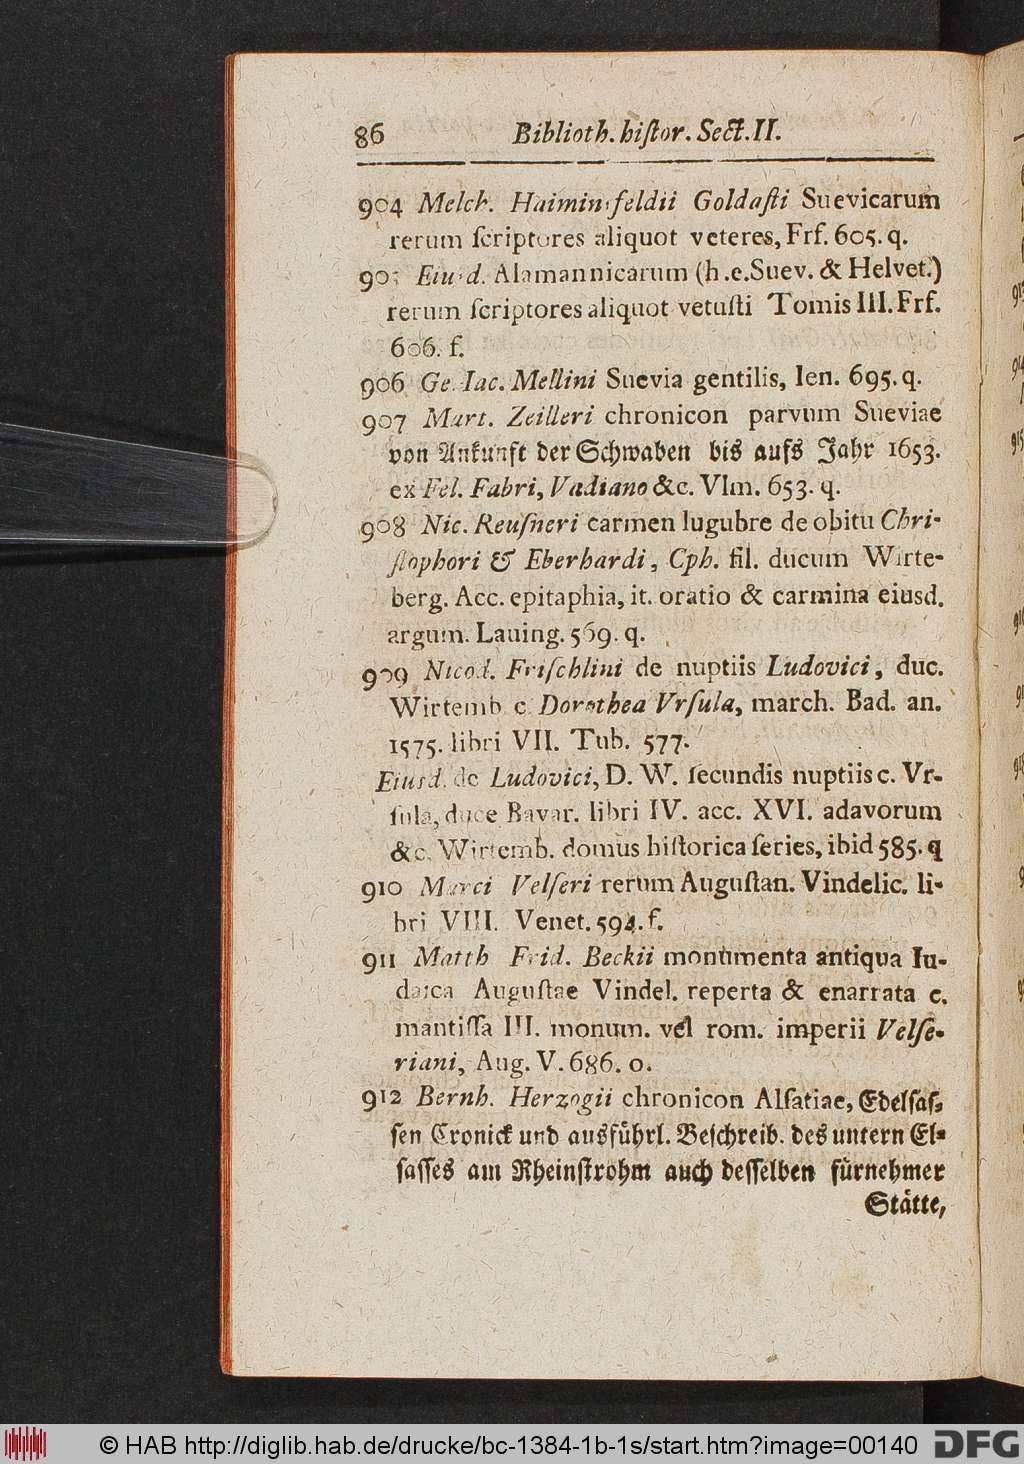 86 Biblioth. hiſtor. Sect. II.
904 Melch. Haiminsfeldii Goldaſti Suevicarum
rerum ſcriptores aliquot veteres, Frf. 605. q.
905 Eiusd. Alamannicarum (h.e. Suev. & Helvet.)
rerum ſcriptores aliquot vetuſti Tomis III. Frf.
606. f.
906 Ge. Iac. Mellini Suevia gentilis, Ien. 695. q.
907 Mart. Zeilleri chronicon parvum Sueviae
von Ankunft der Schwaben bis aufs Jahr 1653.
ex Fel. Fabri, Vadiano &c. Vlm. 653. q.
908 Nic. Reuſneri carmen lugubre de obitu Chri-
ſtophori & Eberhardi, Cph. fil. ducum Wirte-
berg. Acc. epitaphia, it. oratio & carmina eiusd.
argum. Lauing. 569. q.
909 Nicod. Friſchlini de nuptiis Ludovici, duc.
Wirtemb c. Dorothea Vrſula, march. Bad. an.
1575. libri VII. Tub. 577.
Eiusd. de Ludovici, D. W. ſecundis nuptiis c. Vr-
ſula, duce Bavar. libri IV. acc. XVI. adavorum
&c. Wirtemb. domus hiſtorica ſeries, ibid 585. q
910 Marci Velſeri rerum Auguſtan. Vindelic. li-
bri VIII. Venet. 594. f.
911 Matth Frid. Beckii monumenta antiqua Iu-
daica Auguſtae Vindel. reperta & enarrata c.
mantiſſa III. monum. vel rom. imperii Velſe-
riani, Aug. V. 686. o.
912 Bernh. Herzogii chronicon Alſatiae, Edelſaſ-
ſen Cronick und ausführl. Beſchreib. des untern El-
ſaſſes am Rheinſtrohm auch deſſelben fürnehmer
Stätte,
© HAB http://diglib.hab.de/drucke/bc-1384-1b-1s/start.htm?image=00140 DFG